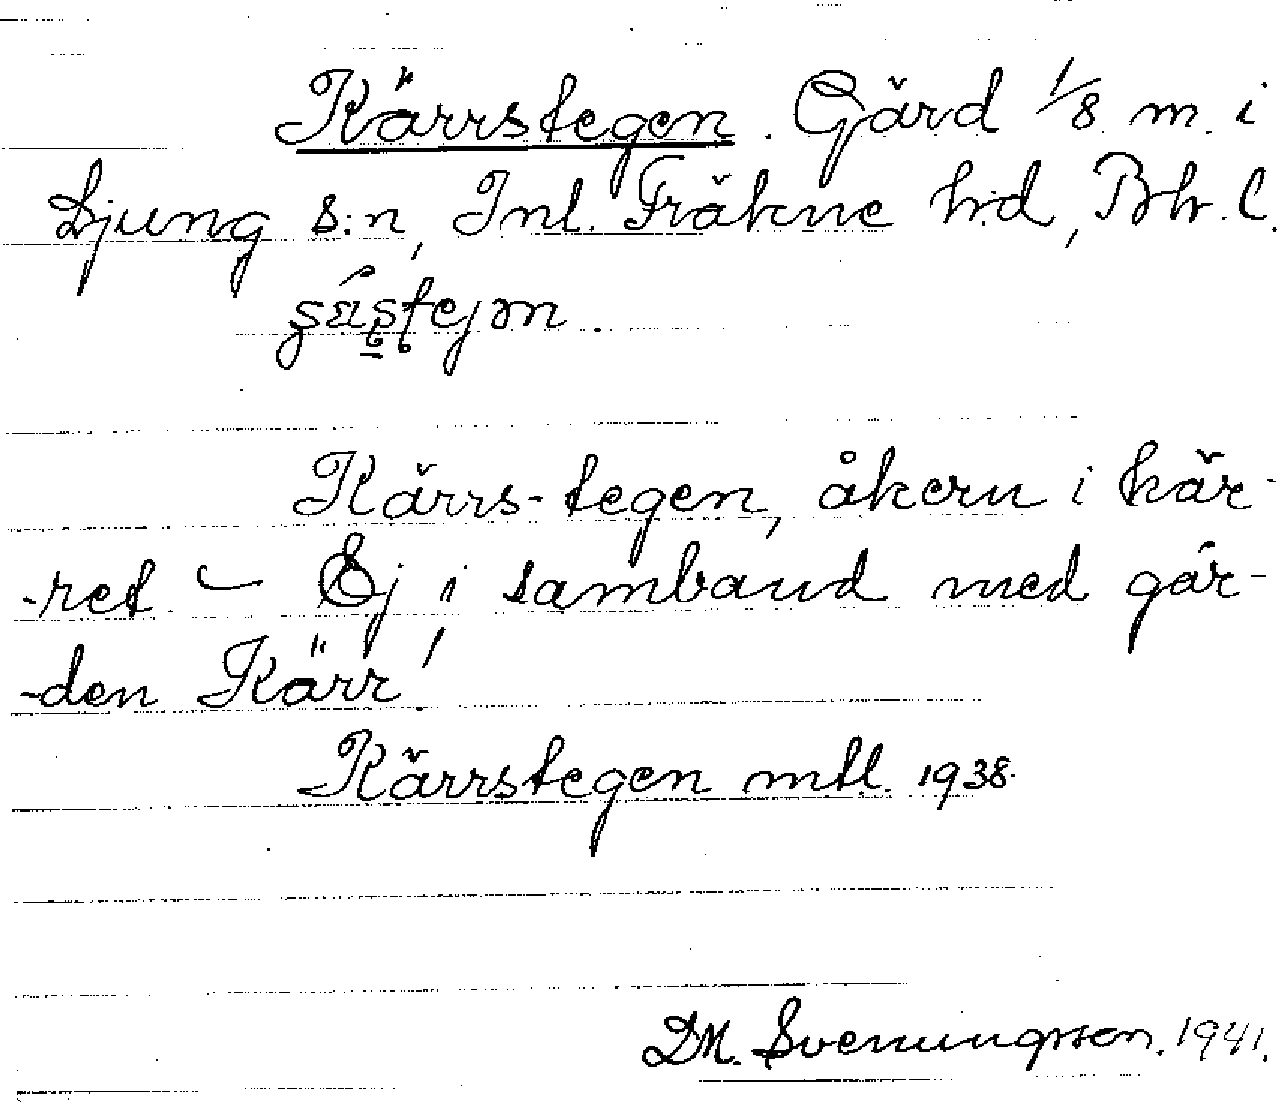 Kärrstegen. Gård 1/8 m. i
Ljung s:n, Inl. Fräkne h:d, Bh. l.
Kärrs-tegen, åkern i kär-
-ret – Ej i samband med går-
-den Kärr!
Kärrstegen mtl. 1938.
DM. Svenungsson. 1941.